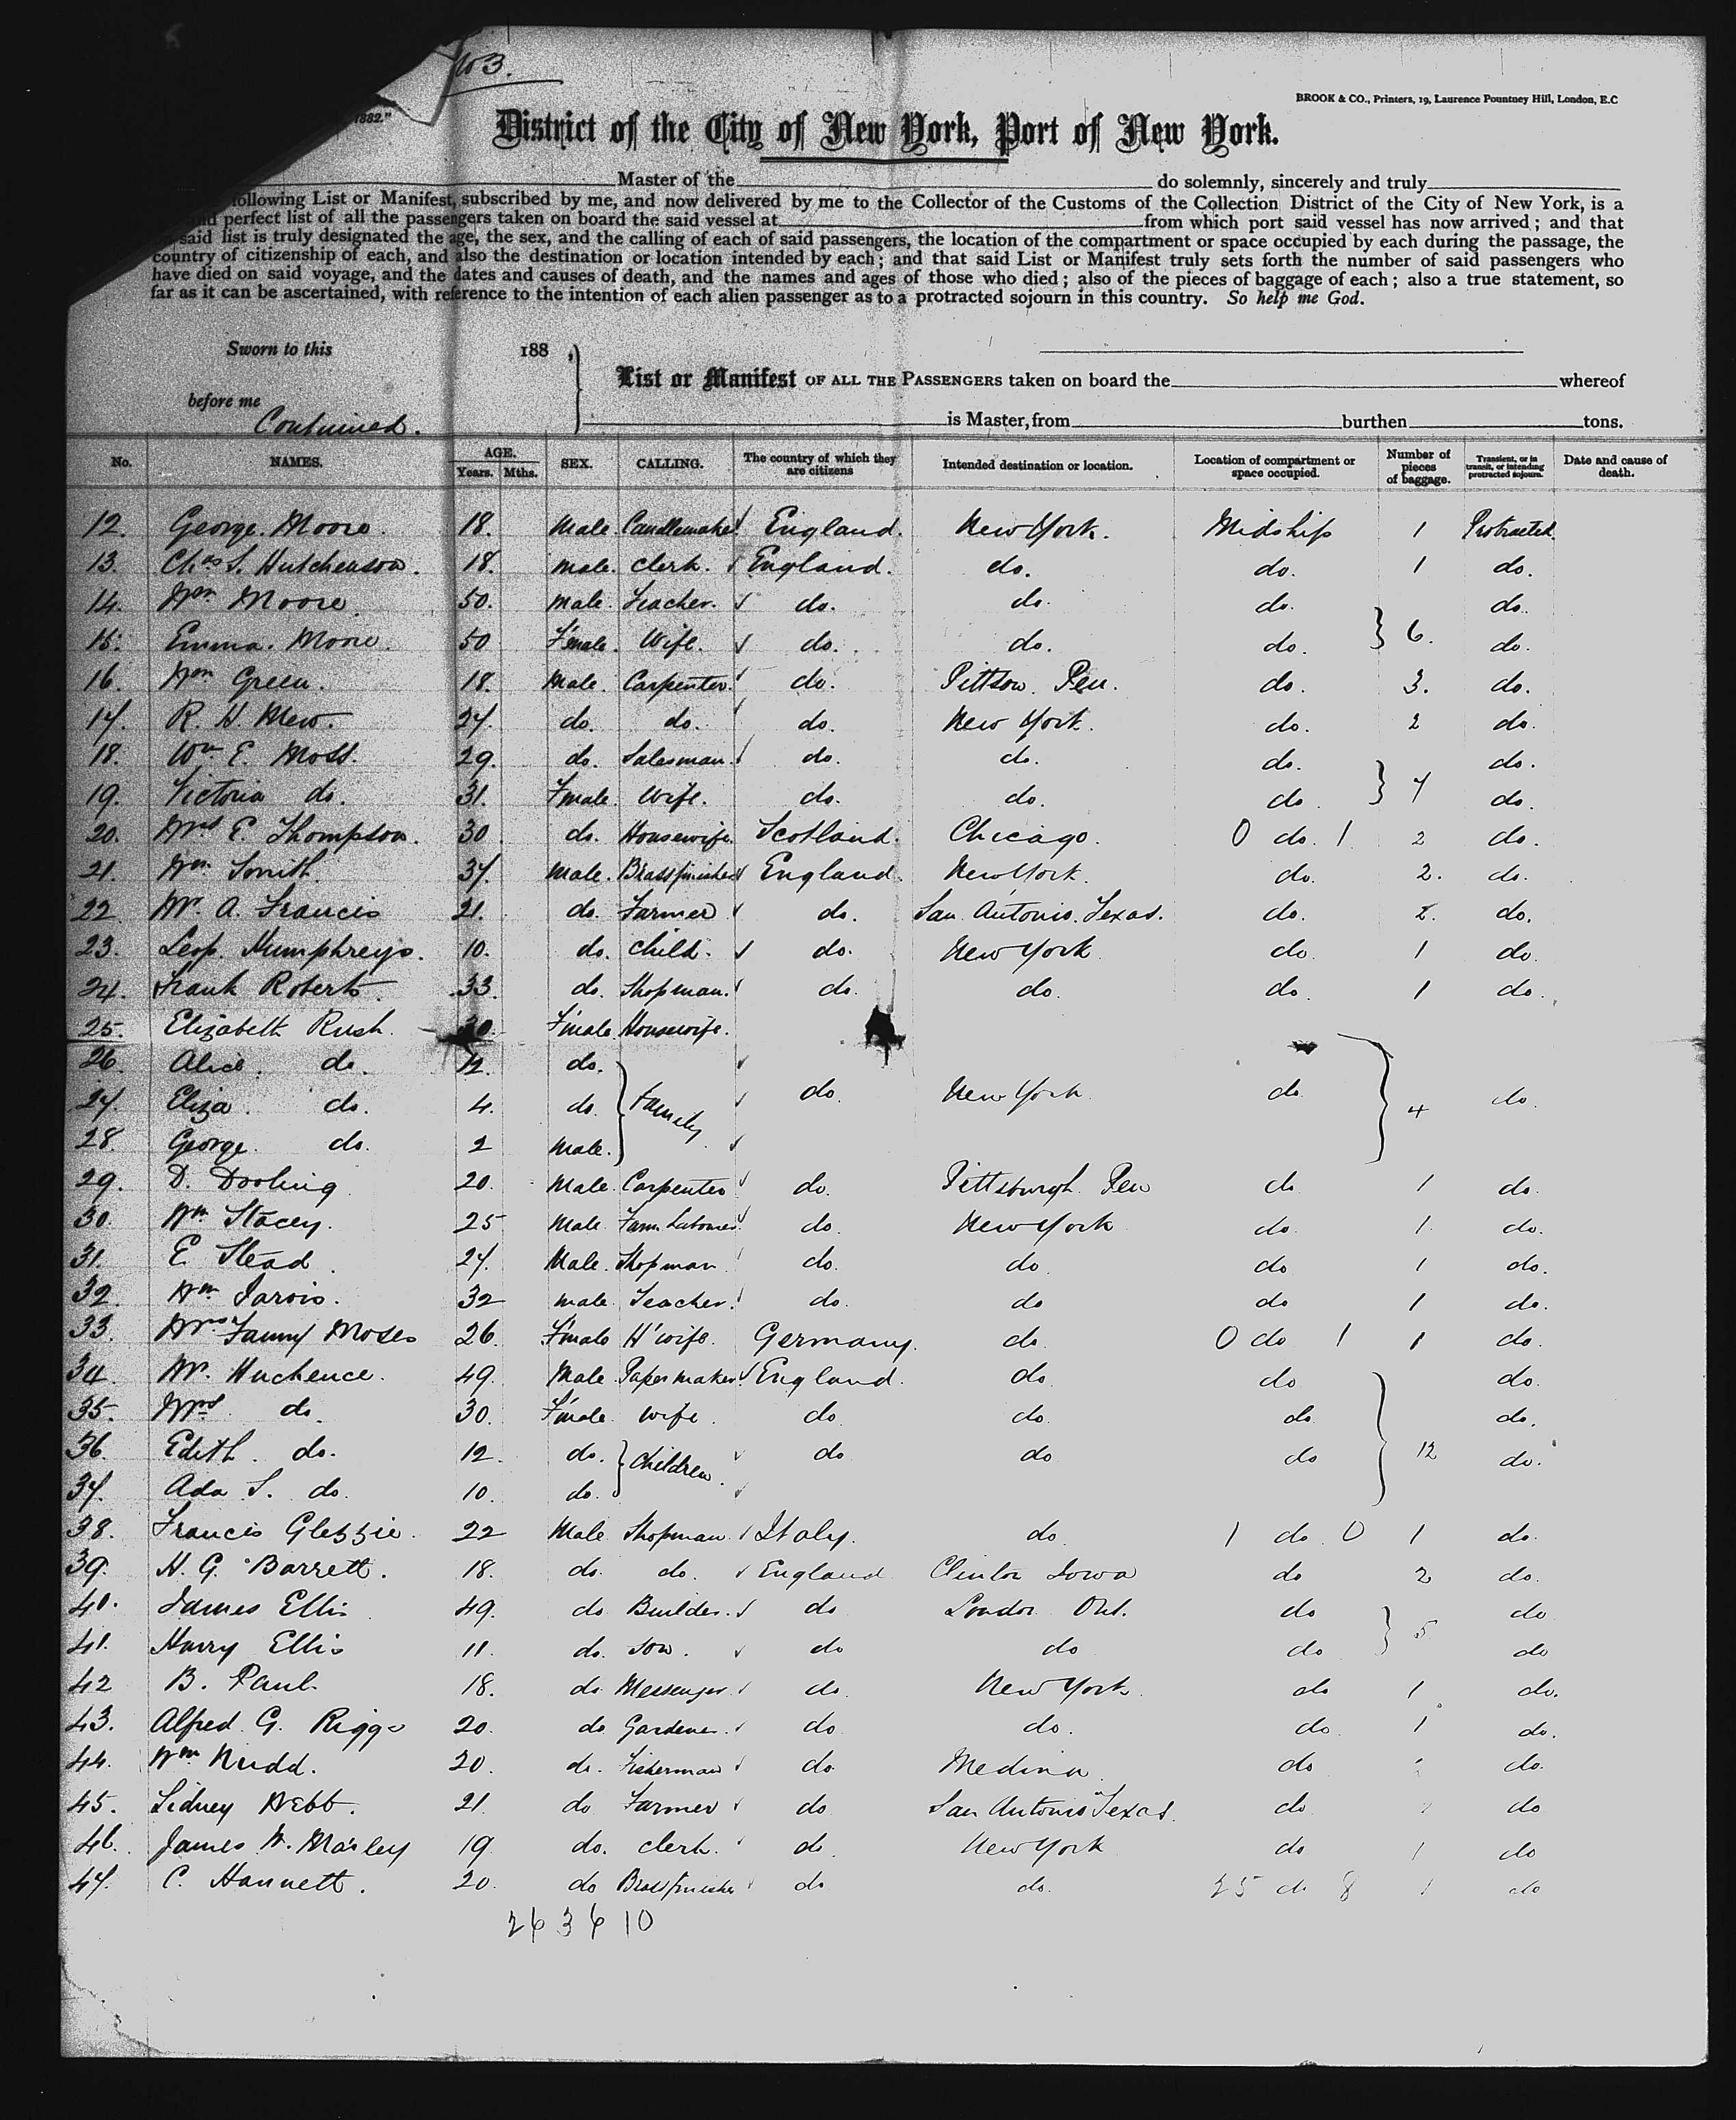 No 3.
1882."
BROOK & CO., Printers, 19, Laurence Pountney Hill, London, E.C
District of the City of New York, Port of New York.
Master of the do solemnly, sincerely and truly
following List or Manifest, subscribed by me, and now delivered by me to the Collector of the Customs of the Collection District of the City of New York, is a
and perfect list of all the passengers taken on board the said vessel at from which port said vessel has now arrived; and that
said list is truly designated the age, the sex, and the calling of each of said passengers, the location of the compartment or space occupied by each during the passage, the
country of citizenship of each, and also the destination or location intended by each; and that said List or Manifest truly sets forth the number of said passengers who
have died on said voyage, and the dates and causes of death, and the names and ages of those who died; also of the pieces of baggage of each; also a true statement, so
far as it can be ascertained, with reference to the intention of each alien passenger as to a protracted sojourn in this country. So help me God.
Sworn to this 188
List or Manifest OF ALL THE PASSENGERS taken on board the whereof
before me
Continued. is Master, from burthen tons.
No. NAMES. AGE. Years. Mths. SEX. CALLING. The country of which they are citizens Intended destination or location. Location of compartment or space occupied. Number of pieces of baggage. Transient, or in transit, or intending protracted sojourn. Date and cause of death.
12. George Moore. 18. Male Candlemaker England. New York. Midship 1 Protracted
13. Chas S. Hutchenson. 18. male. clerk. England. do. do. 1 do.
14. Wm Moore. 50. male. Teacher. do. do. do. do.
15. Emma. Moore. 50 F'male. Wife. do. do. do. } 6. do.
16. Wm Green. 18. Male. Carpenter. do. Pittson. Pen. do. 3. do.
17. R. H. Mew. 27. do. do. do. New York. do. 2 do.
18. Wm E. Moss. 29. do. Salesman. do. do. do. do.
19. Victoria do. 31. F'male. Wife. do. do. do. } 7 do.
20. Mrs E. Thompson. 30 do. Housewife. Scotland. Chicago. 0 do. 1 2 do.
21. Wm Smith. 37. Male. Brassfinisher England. New York. do. 2. do.
22. W. A. Francis 21. do. Farmer do. San Antonio. Texas. do. 2. do.
23. Leop. Humphreys. 10. do. child. do. New York do. 1 do.
24. Frank Roberts. 33. do. Shopman. do. do. do. 1 do.
25. Elizabeth Rush. 30. F'male Housewife.
26. Alice. do. 12. do.
27. Eliza. do. 4. do. } Family do. New York do. } 4 do.
28. George. do. 2 male.
29. D. Dooling 20. Male. Carpenter do. Pittsburgh Pen do 1 do.
30. Wm Stacey. 25 Male Farm Labourer. do. New York do. 1. do.
31. E Stead. 27. Male. Shopman do. do do 1 do.
32. Wm Jarvis. 32 male Teacher. do. do do 1 do.
33. Mrs Fanny Moses 26. F'male H'wife. Germany. do. 0 do 1 1 do.
34. W. Huchence. 49. Male Papermaker. England. do. do do.
35. Mrs do. 30. F'male. wife. do do. do do.
36. Edith. do. 12. do. } Children. do do do } 12 do.
37. Ada S. do. 10. do.
38. Francis Glezzie. 22 Male Shopman. Italy. do. 1 do. 0 1 do.
39. H. G. Barrett. 18. do. do. England Clinton Iowa do 2 do.
40. James Ellis 49. do Builder. do London Ont. do do
41. Harry Ellis 11. do. son. do do do } 5 do
42 B. Paul 18. do Messenger. do. New York. do 1 do.
43. Alfred G. Riggs 20. do Gardener. do do. do 1 do.
44. Wm Nudd. 20. do. Fisherman do. Medina. do do.
45. Sidney Webb. 21. do Farmer do San Antonio Texas. do do
46. James W. Marley 19. do. clerk. do. New York do 1 do
47. C. Hannett. 20. do Brassfinisher do do. 25 do 8 1 do
26 36 10